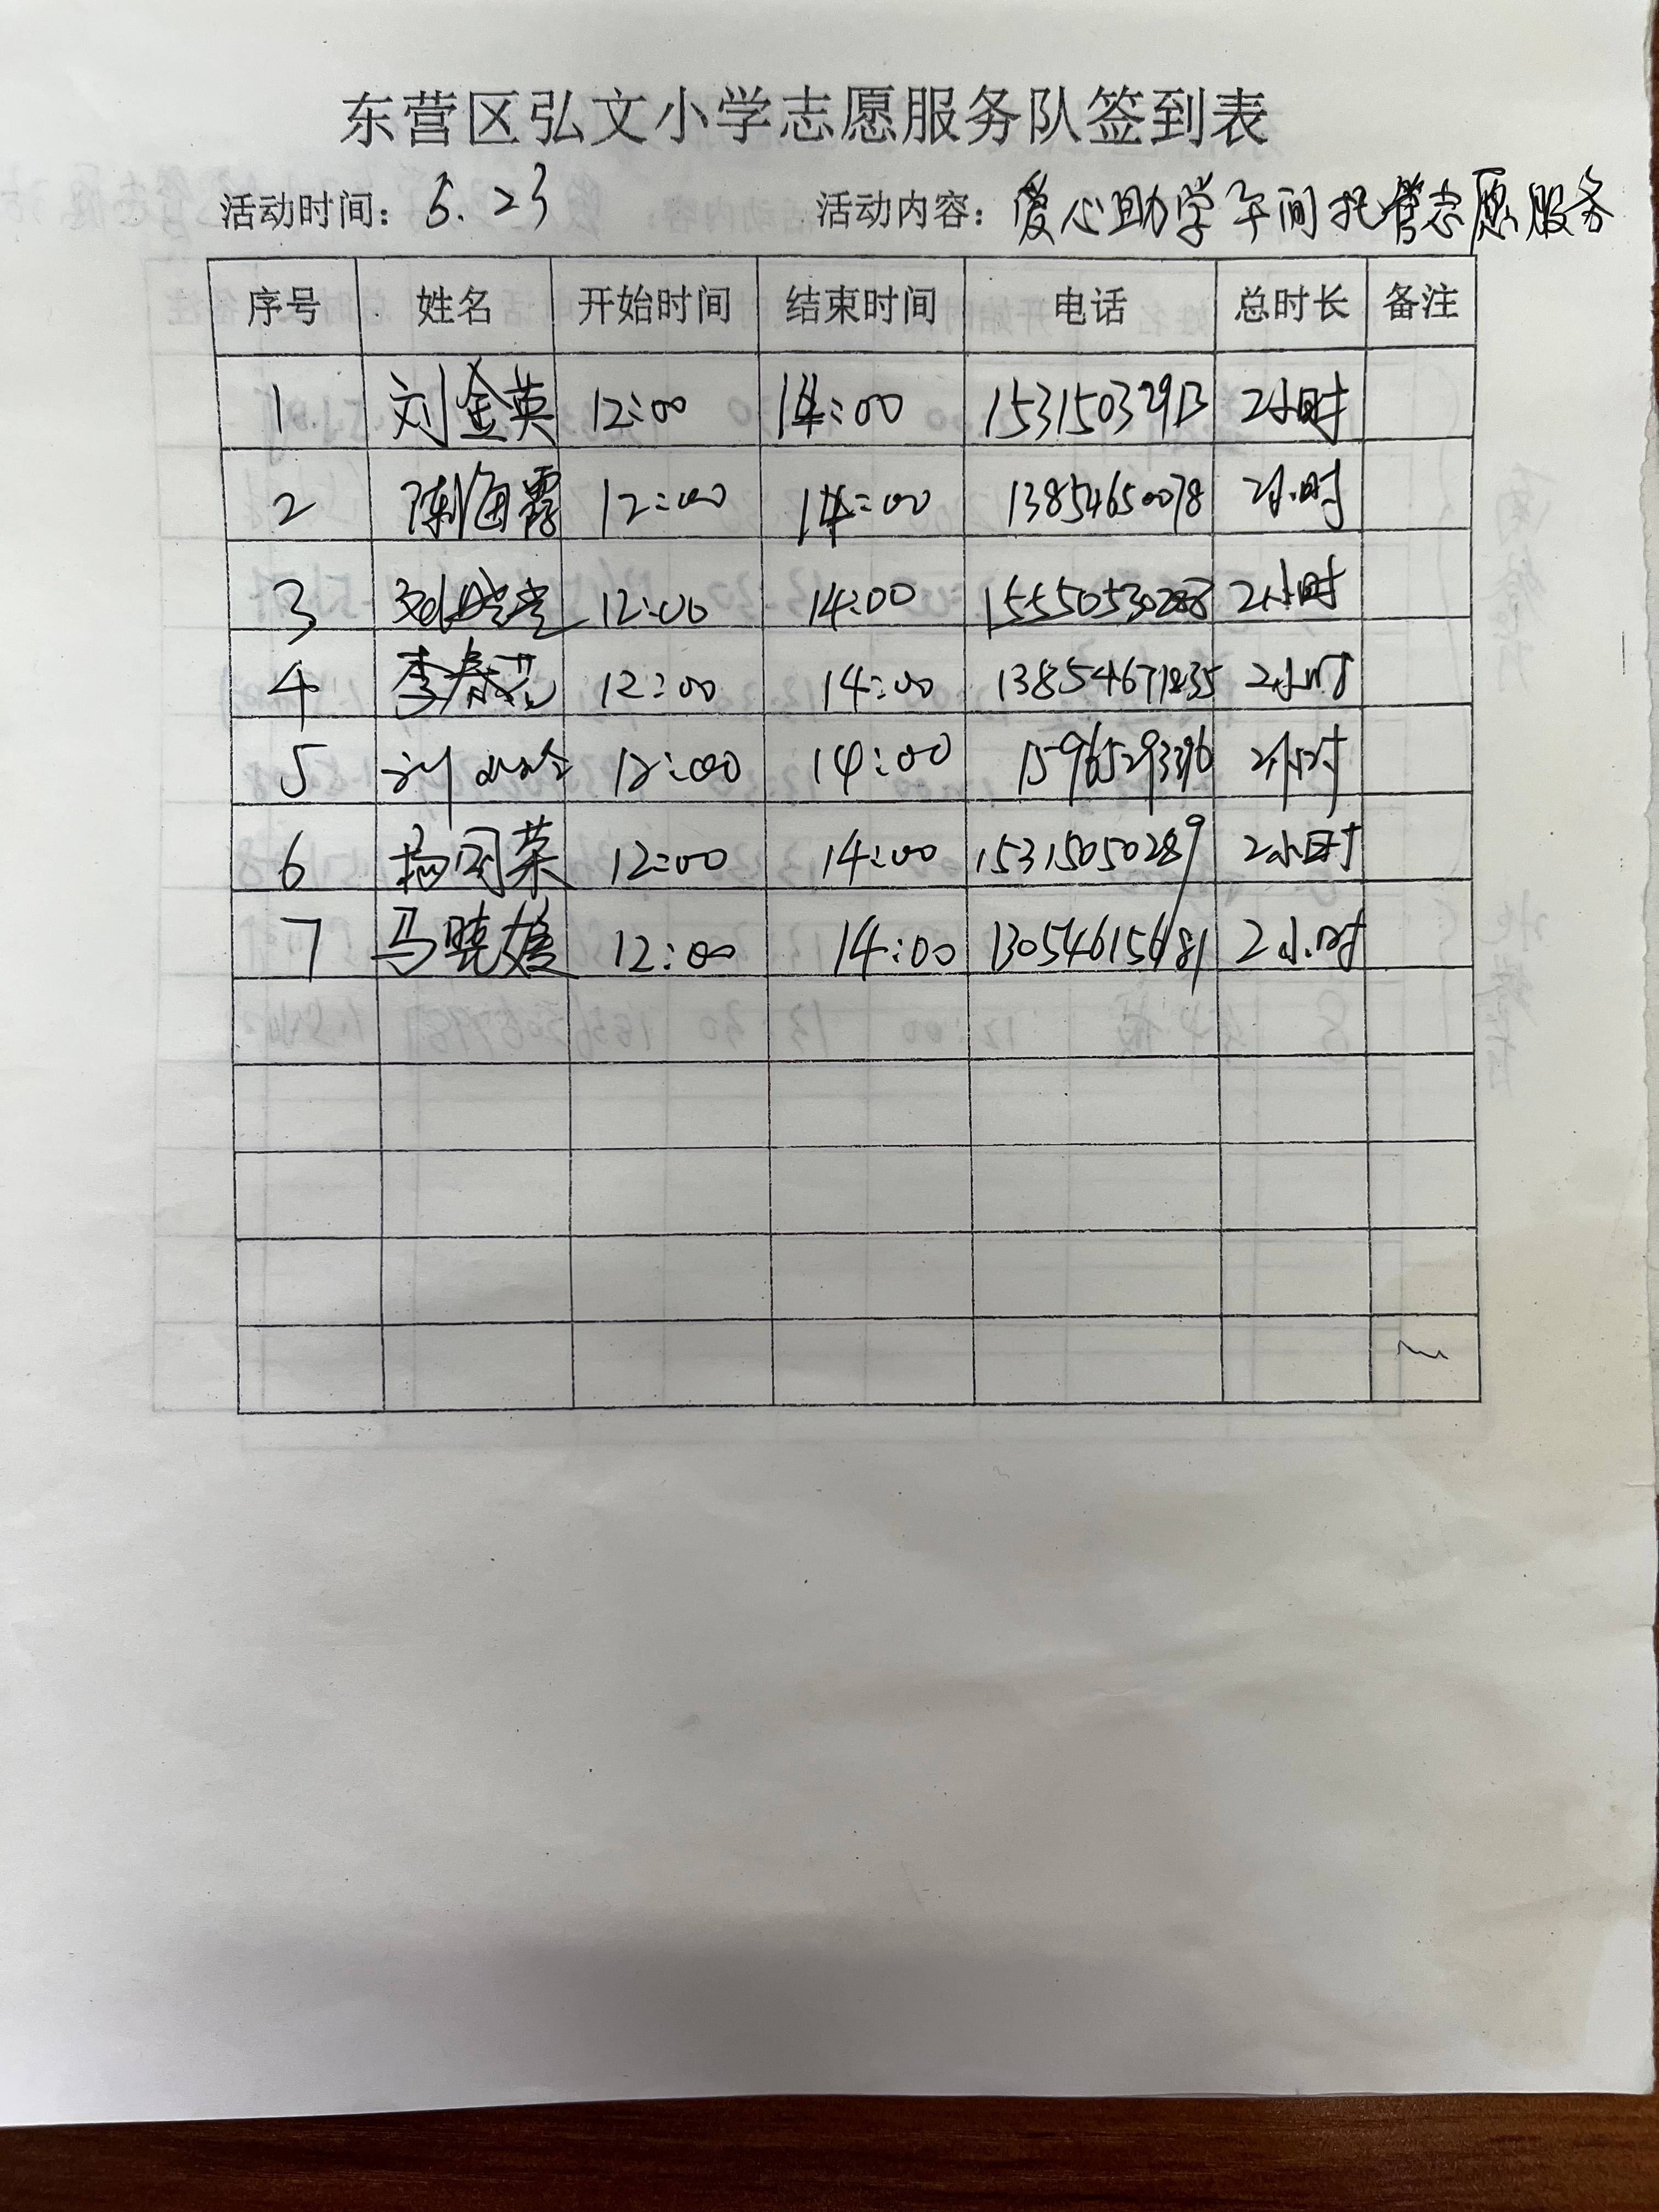 东营区弘文小学志愿服务队签到表
活动时间：6.23 活动内容：爱心助学午间托管志愿服务
序号 姓名 开始时间 结束时间 电话 总时长 备注
1 刘金英 12:00 14:00 2小时
2 陈海霞 12:00 14:00 13854650078 2小时
3 12:00 14:00 2小时
4 李春花 12:00 14:00 2小时
5 12:00 14:00 2小时
6 杨国荣 12:00 14:00 15315050289 2小时
7 马晓媛 12:00 14:00 2小时